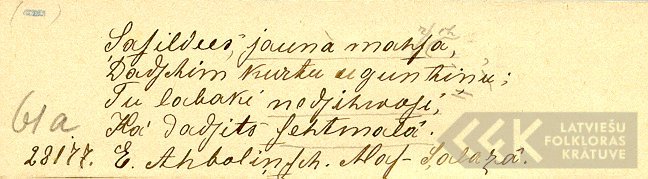 Sasildees, jauna mahsa,
Dadschim kurtu ugunkuru;
Tu labaki nodsihwosi,
Kà dadzits sehtmalâ.
61a
28177. E. Ahboliņsch. Mas-Salazâ.
LATVIEŠU
FOLKLORAS
KRĀTUVE